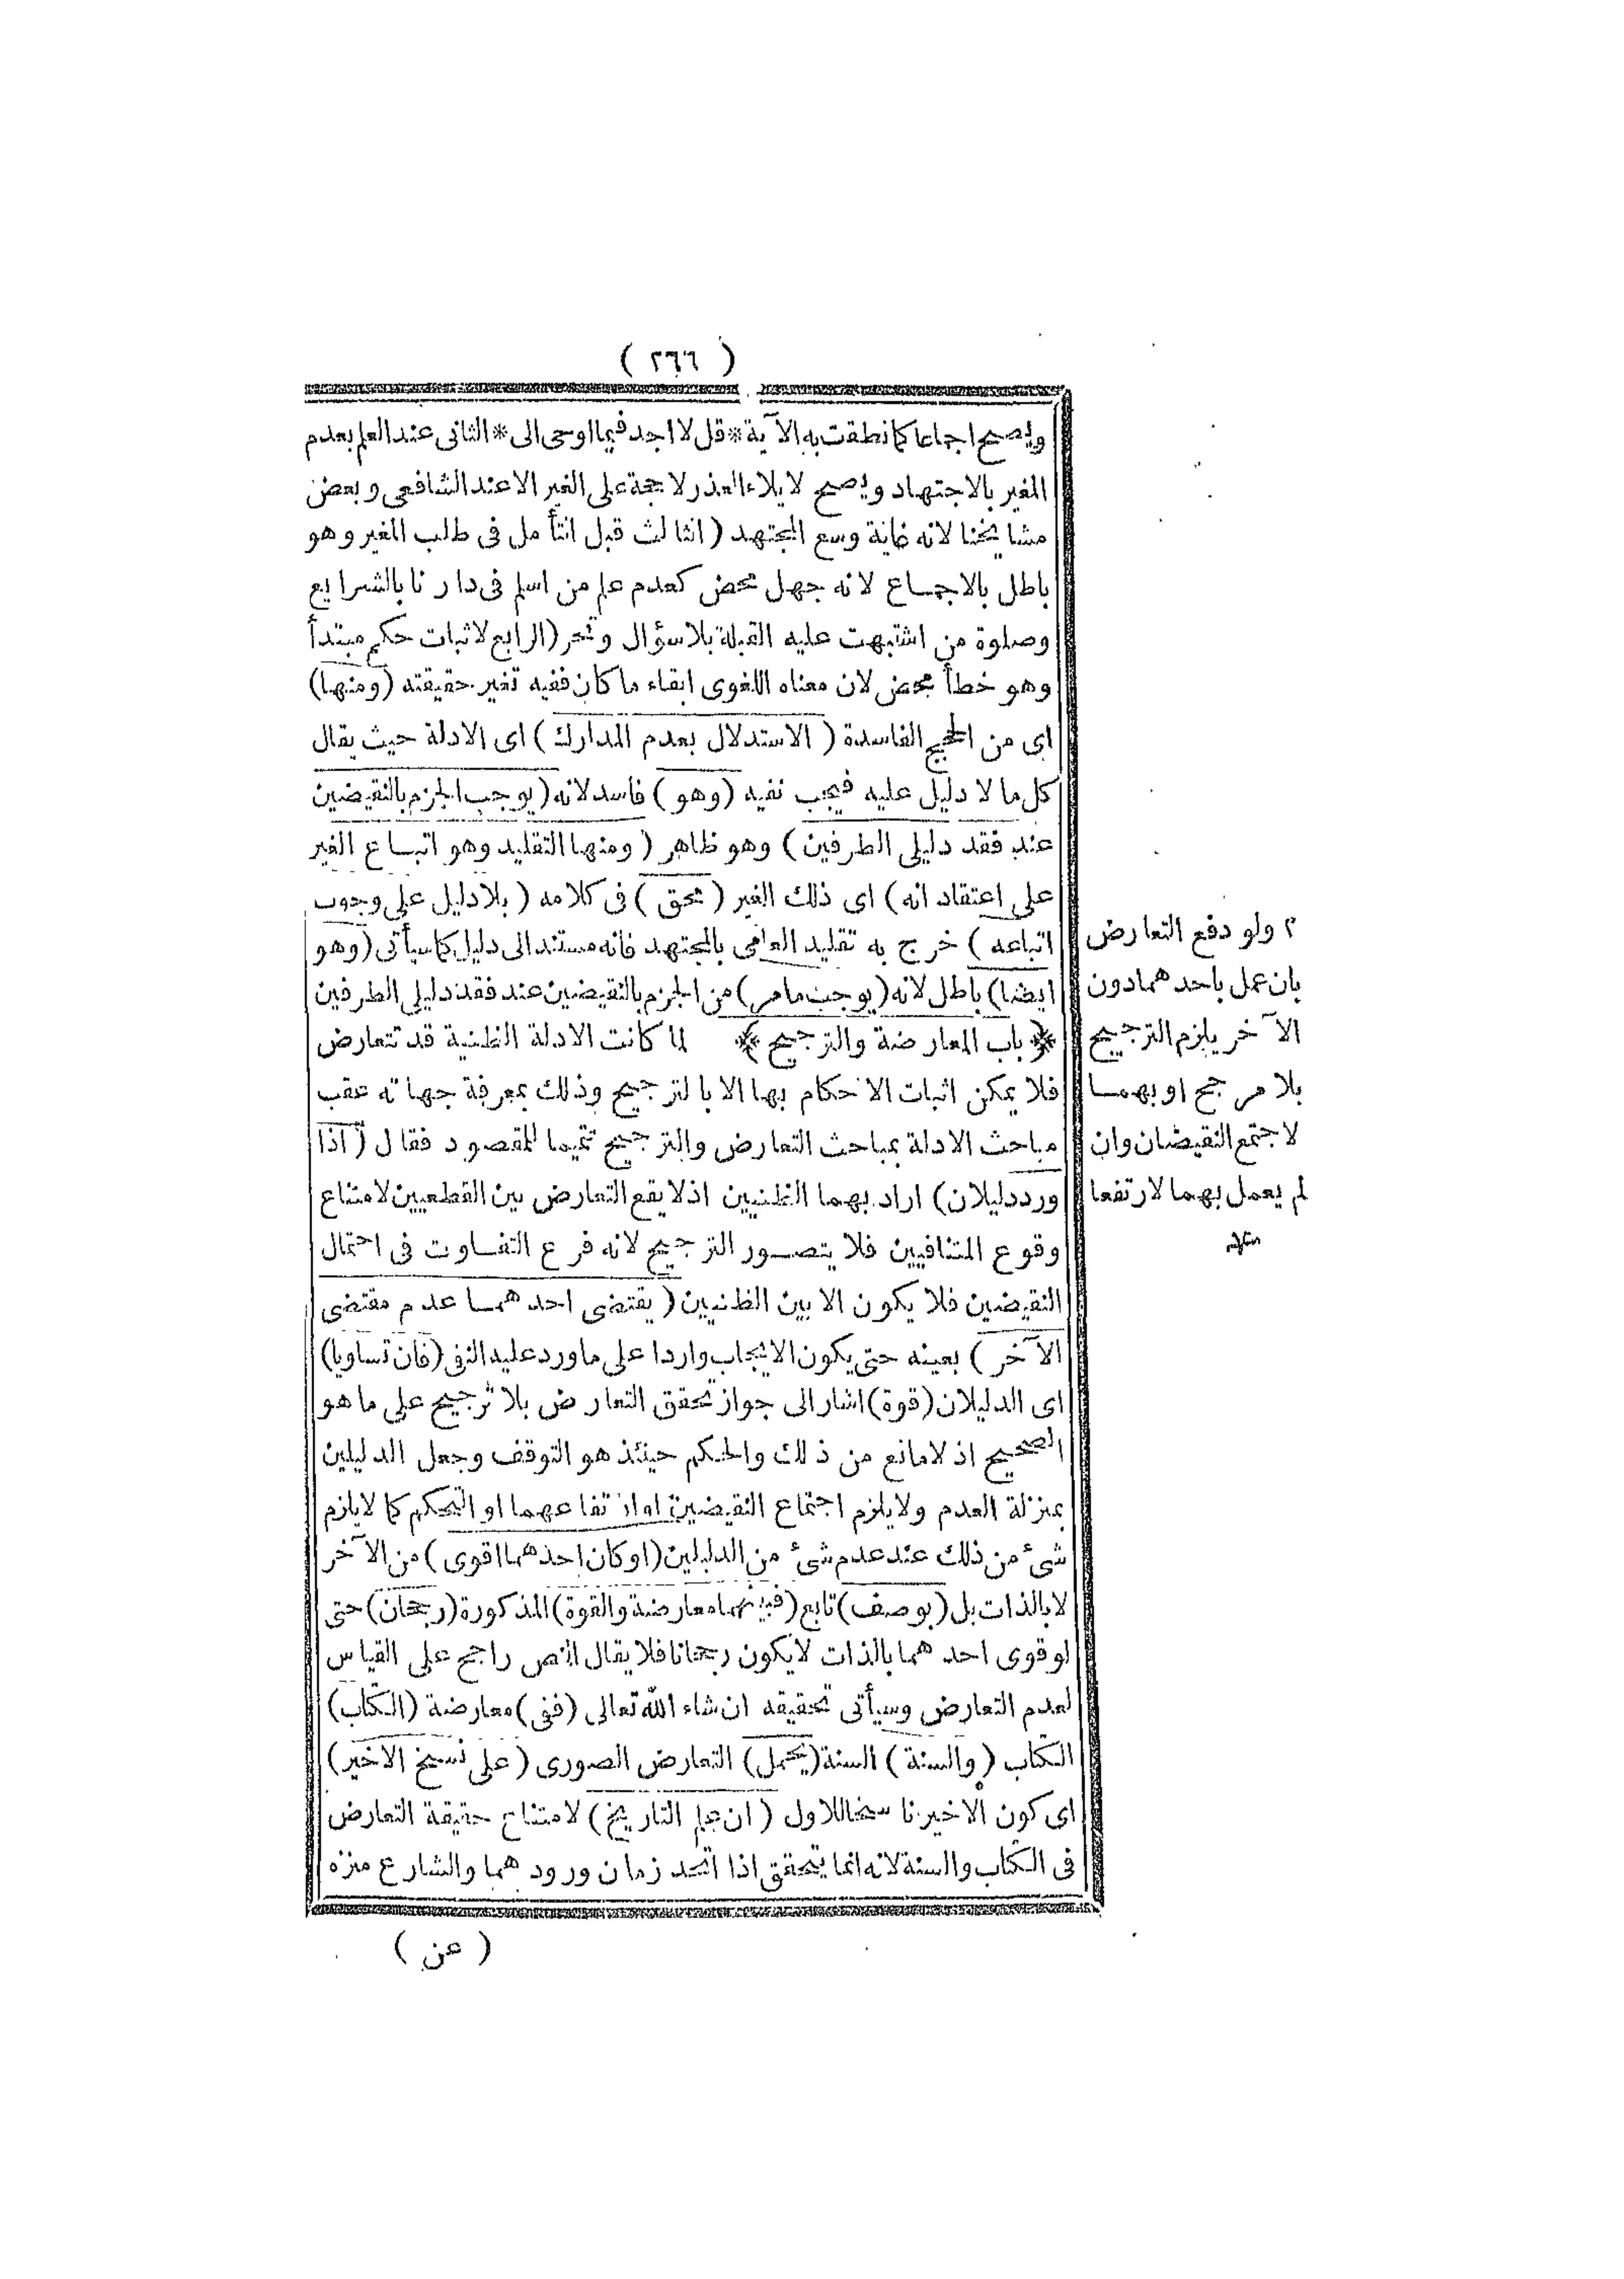 ( ٢٦٦ )
ويصح اجماعا كما نطقت به الآية * قل لا اجد فيما اوحى الى * الثانى عند العلم بعدم
المغير بالاجتهاد ويصح لابلاء العذر لا حجة على الغير الا عند الشافعى وبعض
مشايخنا لانه غاية وسع المجتهد ( الثالث قبل التأمل فى طلب المغير وهو
باطل بالاجماع لانه جهل محض كعدم علم من اسلم فى دارنا بالشرايع
وصلوة من اشتبهت عليه القبلة بلا سؤال وتحر ( الرابع لاثبات حكم مبتدأ
وهو خطأ محض لان معناه اللغوى ابقاء ما كان ففيه تغير حقيقته ( ومنها )
اى من الحجج الفاسدة ( الاستدلال بعدم المدارك ) اى الادلة حيث يقال
كل ما لا دليل عليه فيجب نفيه ( وهو ) فاسد لانه ( يوجب الجزم بالنقيضين
عند فقد دليلى الطرفين ) وهو ظاهر ( ومنها التقليد وهو اتباع الغير
على اعتقاد انه ) اى ذلك الغير ( محق ) فى كلامه ( بلا دليل على وجوب
اتباعه ) خرج به تقليد العامى بالمجتهد فانه مستند الى دليل كما سيأتى ( وهو
ايضا ) باطل لانه ( يوجب ما مر ) من الجزم بالنقيضين عند فقد دليلى الطرفين
﴿ باب المعارضة والترجيح ﴾ لما كانت الادلة الظنية قد تتعارض
فلا يمكن اثبات الاحكام بها الا بالترجيح وذلك بمعرفة جهاته عقب
مباحث الادلة بمباحث التعارض والترجيح تتميما للمقصود فقال ( اذا
ورد دليلان ) اراد بهما الظنيين اذ لا يقع التعارض بين القطعيين لامتناع
وقوع المتنافيين فلا يتصور الترجيح لانه فرع التفاوت فى احتمال
النقيضين فلا يكون الا بين الظنيين ( يقتضى احدهما عدم مقتضى
الآخر ) بعينه حتى يكون الايجاب واردا على ما ورد عليه النفى ( فان تساويا )
اى الدليلان ( قوة ) اشار الى جواز تحقق التعارض بلا ترجيح على ما هو
الصحيح اذ لا مانع من ذلك والحكم حينئذ هو التوقف وجعل الدليلين
بمنزلة العدم ولا يلزم اجتماع النقيضين او ارتفاعهما او التحكم كما لا يلزم
شئ من ذلك عند عدم شئ من الدليلين ( او كان احدهما اقوى ) من الآخر
لا بالذات بل ( بوصف ) تابع ( فبينهما معارضة والقوة ) المذكورة ( رجحان ) حتى
لو قوى احدهما بالذات لا يكون رجحانا فلا يقال النص راجح على القياس
لعدم التعارض وسيأتى تحقيقه ان شاء الله تعالى ( ففى ) معارضة ( الكتاب )
الكتاب ( والسنة ) السنة ( يحمل ) التعارض الصورى ( على نسخ الاخير )
اى كون الاخير ناسخا للاول ( ان علم التاريخ ) لامتناع حقيقة التعارض
فى الكتاب والسنة لانه انما يتحقق اذا اتحد زمان ورودهما والشارع منزه
( عن )
٢ ولو دفع التعارض
بان عمل باحدهما دون
الآخر يلزم الترجيح
بلا مرجح او بهما
لاجتمع النقيضان وان
لم يعمل بهما لارتفعا